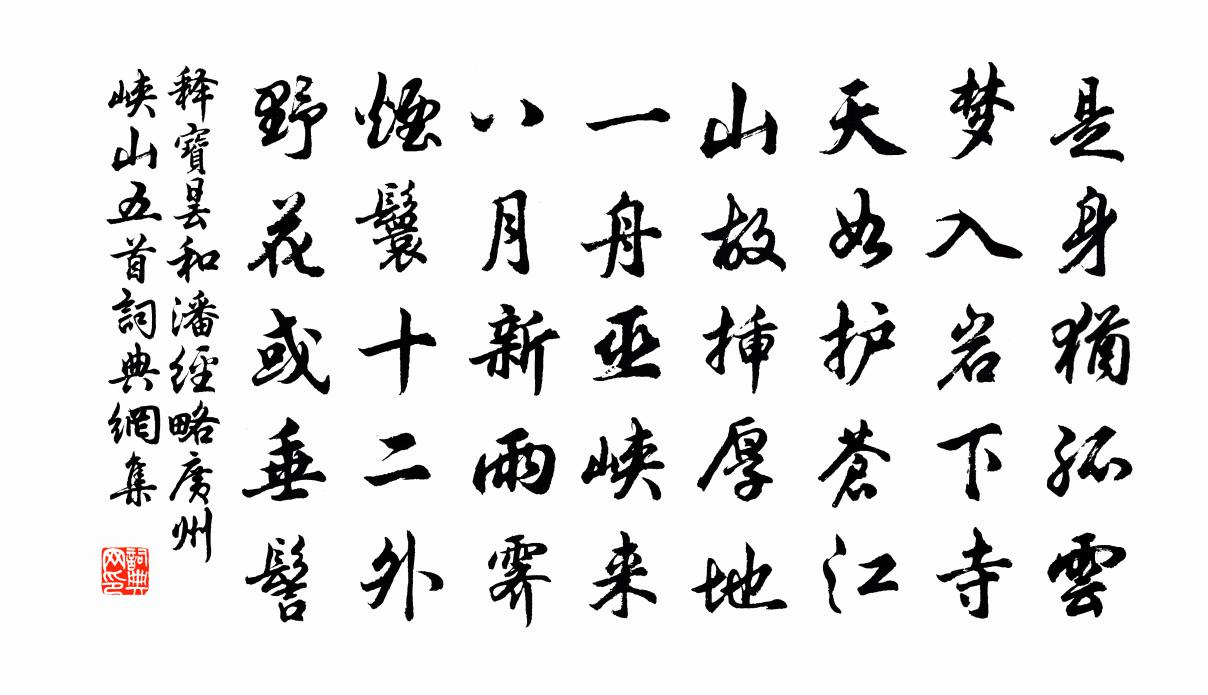 是身犹孤雲
梦入岩下寺
天如护蒼江
山故挿厚地
一舟巫峡来
八月新雨霁
煙鬟十二外
野花或垂髻
释寳昙和潘經略廣州
峡山五首詞典網集
詞典网印